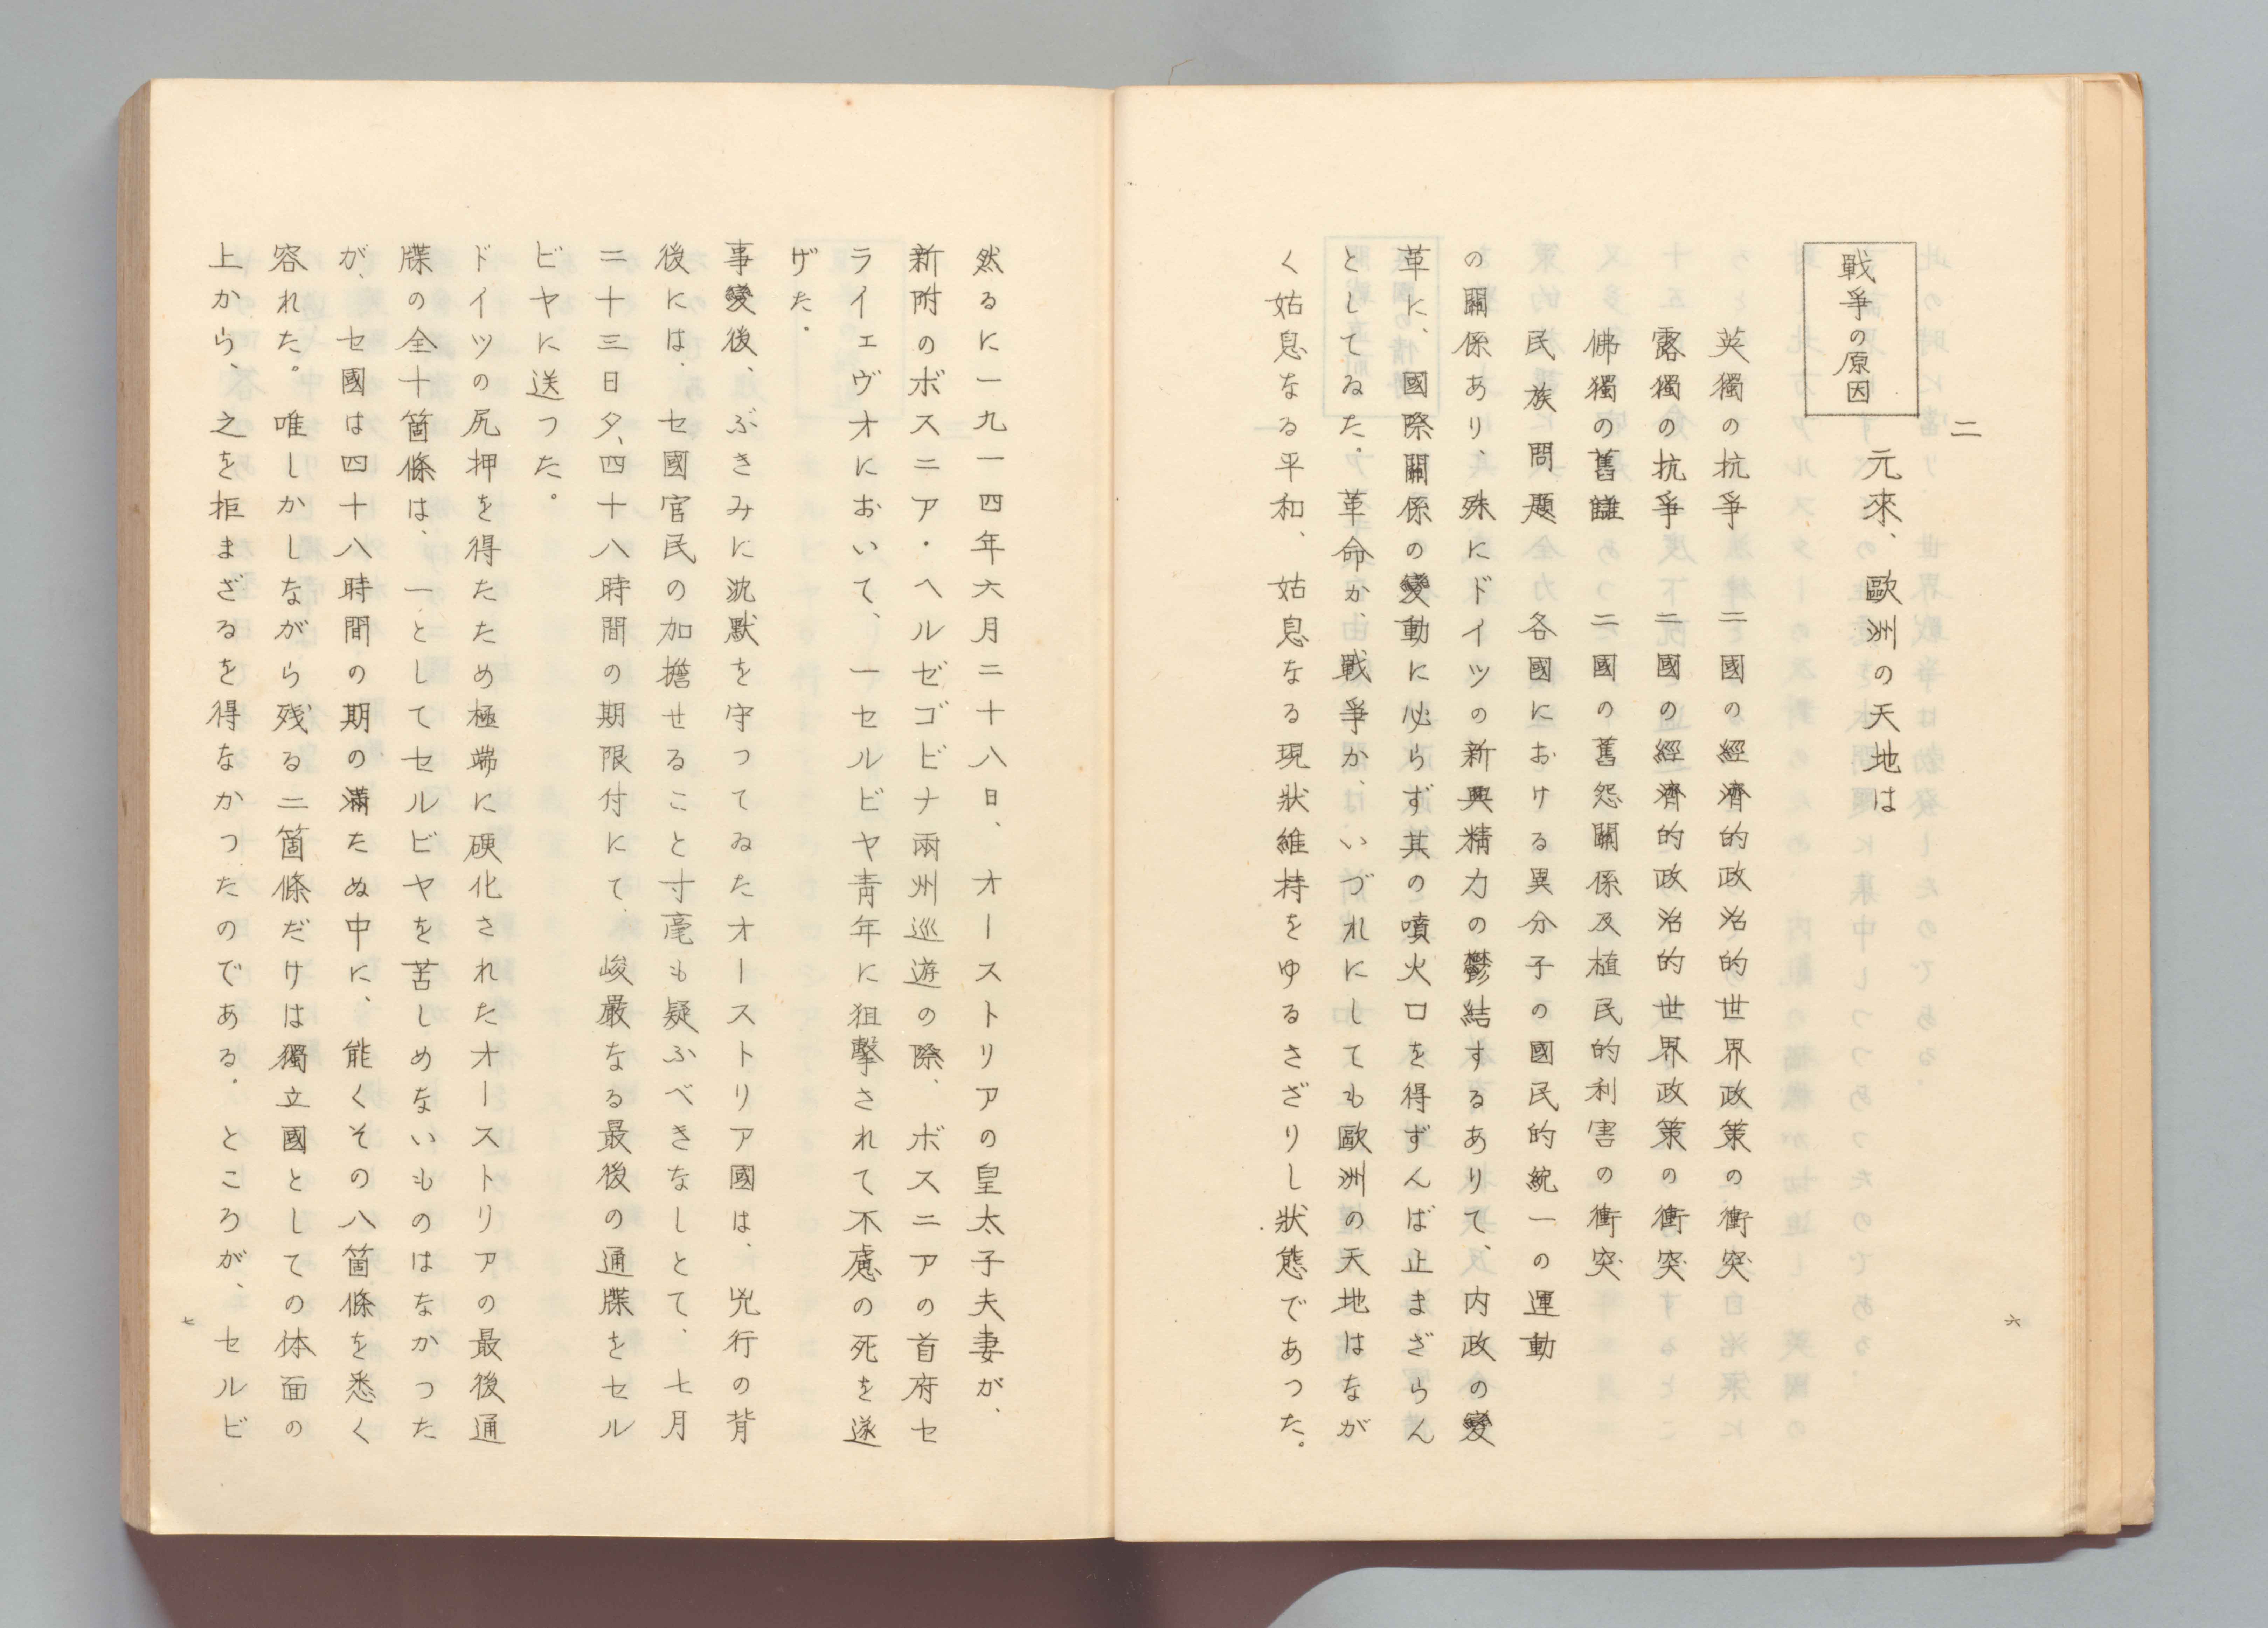 二
戰爭の原因
元來、歐洲の天地は
英獨の抗爭　二國の經濟的政治的世界政策の衝突
露獨の抗爭　二國の經濟的政治的世界政策の衝突
佛獨の舊讎　二國の舊怨關係及植民的利害の衝突
民族問題　各國における異分子の國民的統一の運動
の關係あり、殊にドイツの新興精力の鬱結するありて、内政の變
革に、國際關係の變動に必らず其の噴火口を得ずんば止まざらん
としてゐた。革命か、戰爭か、いづれにしても歐洲の天地はなが
く姑息なる平和、姑息なる現狀維持をゆるさざりし狀態であつた。
六
然るに一九一四年六月二十八日、オーストリアの皇太子夫妻が、
新附のボスニア・ヘルゼゴビナ兩州巡遊の際、ボスニアの首府セ
ライェヴオにおいて、一セルビヤ靑年に狙擊されて不慮の死を遂
げた．
事變後、ぶきみに沈默を守つてゐたオーストリア國は、兇行の背
後には、セ國官民の加擔せること寸毫も疑ふべきなしとて、七月
二十三日夕、四十八時間の期限付にて、峻嚴なる最後の通牒をセル
ビヤに送つた。
ドイツの尻押を得たため極端に硬化されたオーストリアの最後通
牒の全十箇條は、一としてセルビヤを苦しめないものはなかつた
が、セ國は四十八時間の期の滿たぬ中に、能くその八箇條を悉く
容れた。唯しかしながら残る二箇條だけは獨立國としての体面の
上から、之を拒まざるを得なかつたのである．ところが、セルビ
七